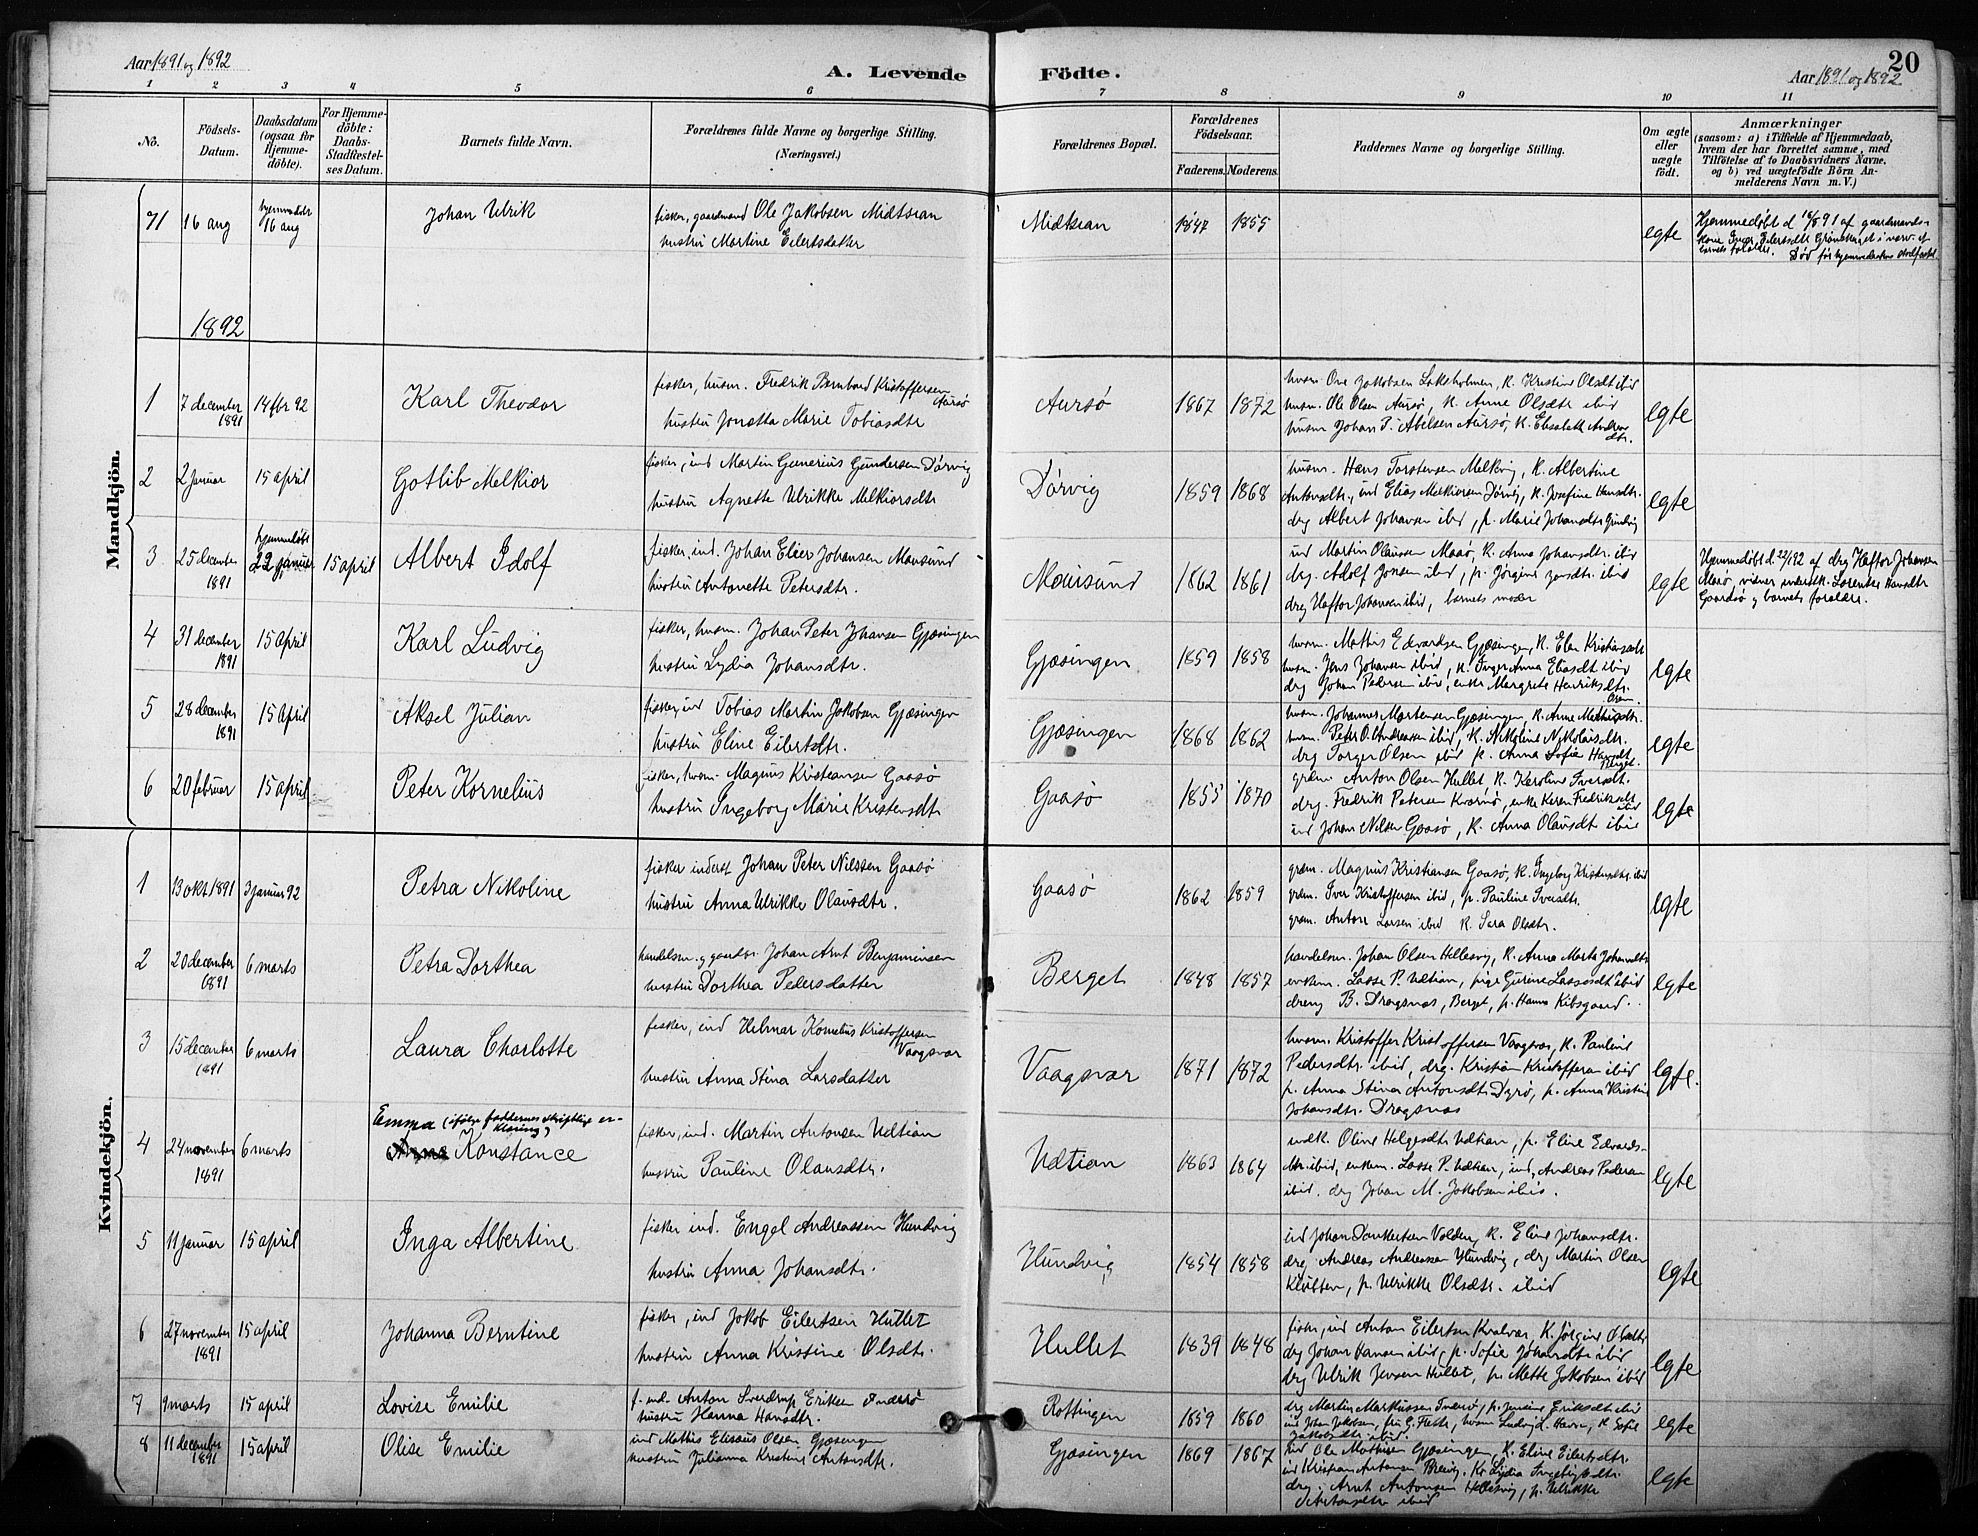 Aar 1891 og 1892
A. Levende Födte.
Aar 1891 og 1892
20
1 2 3 4 5 6 7 8 9 10 11
No.
Födsels-Datum.
Daabsdatum (ogsaa for Hjemme-döbte).
For Hjemme-döbte: Daabs-Stadfæstel-ses Datum.
Barnets fulde Navn.
Forældrenes fulde Navne og borgerlige Stilling. (Næringsvei.)
Forældrenes Bopæl.
Forældrenes Födselsaar.
Faderens. Moderens.
Faddernes Navne og borgerlige Stilling.
Om ægte eller uægte födt.
Anmærkninger
(saasom: a) i Tilfælde af Hjemmedaab, hvem der har forrettet samme, med Tilföielse af to Daabsvidners Navne, og b) ved uægtefödte Börn Anmelderens Navn m. V.)
Mandkjön.
71 16 aug hjemmedøbt 16 aug Johan Ulrik fisker, gaardmand Ole Jakobsen Midtsian
hustru Martine Eilertsdatter
Midtsian 1847 1855 egte
Hjemmedøbt d 16/8 91 af gaardmands-
kone
barnets forældre. Død før
1892
1 7 december 1891 14 fbr 92 Karl Theodor fisker, husm. Fredrik Bernhard Kristoffersen Aursø
hustru Jonetta Marie Tobiasdtr
Aursø 1867 1872
husm. Ove Jakobsen Laksholmen, K. Kristine Olsdt ibid
husm. Ole Olsen Aursø, K. Anne Olsdtr ibid
husm Johan P. Abelsen Aursø, K. Elisabeth Andreasdtr.
egte
2 2 januar 15 april Gotlib Melkior fisker, ind Martin Gunerius Gundersen Dørvig
hustru Agnette Ulrikke Melkiorsdtr
Dørvig 1859 1868
husm. Hans Torstensen Melkvig, K. Albertine
Antonsdtr., ind Elias Melkiorsen Dørvig, K. Josefine Hansdtr.
drg Albert Johansen ibid, p. Marie Johansdtr Gundvig
egte
3 25 december 1891 hjemmedøbt 22 januar 15 april Albert Idolf fisker, ind. Johan Elier Johansen Mausund
hustru Antonette Petersdtr.
Mausund 1862 1861
ind Martin Olaussen Maasø, K. Anna Johansdtr. ibid
drg. Adolf Jonsen ibid, p. Jørgine Jensdtr. ibid
drg Haftor Johansen ibid, barnets moder
egte
Hjemmedøbt d. 22/1 92 af drg Haftor Johansen
Maasø, vidner inderstk. Lorentse Hansdtr
Gaardsø og barnets forældre.
4 31 december 1891 15 april Karl Ludvig fisker, husm. Johan Peter Johansen Gjæsingen
hustru Lydia Johansdtr.
Gjæsingen 1859 1858
husm. Mathis Edvardsen Gjæsingen, K. Elen Kristiansdt
husm. Jens Johansen ibid, K. Inger Anna Eliasdt ibid
drg Johan Pedersen ibid, enke Margrete Henriksdtr.
egte
5 28 december 1891 15 april Aksel Julian fisker, ind Tobias Martin Jakobsen Gjæsingen
hustru Eline Eilertsdtr.
Gjæsingen 1868 1862
husm. Johannes Mortensen Gjæsingen, K. Anne Mathisdtr.
husm. Peter O. Andreassen ibid, K. Nikoline Nikolaisdtr.
drg Torger Olsen ibid p. Anna Sofie Hansdt
egte
6 20 februar 15 april Peter Kornelius fisker, husm. Magnus Kristiansen Gaasø
hustru Ingeborg Marie Kristensdt
Gaasø 1855 1870
græm. Anton Olsen Hullet K. Karoline Iversdt.
drg. Fredrik Petersen Kvernø, enke Karen Fredriksdt ibid
ind Johan Nilsen Gaasø, K. Anna Olausdt ibid
egte
Kvindekjön.
1 13 okt 1891 3 januar 92 Petra Nikoline fisker inderst Johan Peter Nilssen Gaasø
hustru Anna Ulrikke Olausdtr.
Gaasø 1862 1859
græm. Magnus Kristiansen Gaasø, K. Ingeborg Kristensdtr. ibid
græm. Iver Kristoffersen ibid, p. Pauline Iversdtr.
græm. Anton Larsen ibid K. Sara Olsdtr.
egte
2 20 december 1891 6 marts Petra Dorthea handelsm. og gaardbr. Johan Arnt Benjaminsen
hustru Dorthea Pedersdatter
Berget 1848 1857
handelsm. Johan Olsen Hellesvig, K. Anna Marta Johansdtr
enkem. Lasse P. Udtian, pige Gurine Lassesdt ibid
dreng B. Dragsnæs, Berget, p. Hanna Kibsgaard.
egte
3 15 december 1891 6 marts Laura Charlotte fisker, ind Hilmar Kornelius Kristoffersen Vaagsvær
hustru Anna Stina Larsdatter
Vaagsvær 1871 1872
husm. Kristoffer Kristoffersen Vaagsvær, K. Pauline
Pedersdtr. ibid, drg. Kristian Kristoffersen ibid
p. Anna Stina Antonsdt Dyrø, p. Anna Kristine
Johansdtr. Dragsnæs
egte.
4 24 november 1891 6 marts Emma (ifølge faddernes skriftlige er-
klæring)
Anna Konstance fisker, ind. Martin Antonsen Udtian
hustru Pauline Olausdtr.
Udtian 1863 1864
indk. Oline Helgesdt Udtian, p. Eline Edvards-
dtr. ibid, enkem. Lasse P. Udtian, ind. Andreas Pedersen
ibid. drg Johan M. Jakobsen ibid.
egte
5 11 januar 15 april Inga Albertine fisker ind. Engel Andreassen Hundvig
hustru Anna Johansdtr.
Hundvig 1854 1858
ind Johan Dankertsen Valden, K. Eline Johansdtr.
drg. Andreas Andreassen Hundvig, drg Martin Olsen
Kløtten, p. Ulrikke Olsdtr. ibid
egte
6 27 november 1891 15 april Johanna Berntine fisker, ind Jakob Eilertsen Hullet
hustru Anna Kristine Olsdtr.
Hullet 1839 1848
fisker, ind Anton Eilertsen Kvalvær, K. Jørgine Olsdtr
drg Johan Hansen ibid, p. Sofie Johansdtr ibid
drg Ulrik Jensen Hullet, p. Mette Jakobsen ibid
egte
7 9 marts 15 april Lovise Emilie f. ind. Anton Sverdrup Eriksen
hustru Hanna Hansdtr.
Rottingen 1859 1860
drg Martin Markussen
Jakobsdtr ibid.
egte
8 11 december 1891 15 april Olise Emilie ind Mathis Elisæus Olsen Gjæsingen
hustru Julianna Kristine Antonsdtr.
Gjæsingen 1869 1867
ind Ole Mathisen Gjæsingen, K. Eline Eilertsdtr.
ind Kristian Antonsen
drg. Arnt Antonsen Hellesvig, p. Ulrikke
Antonsdtr ibid
egte